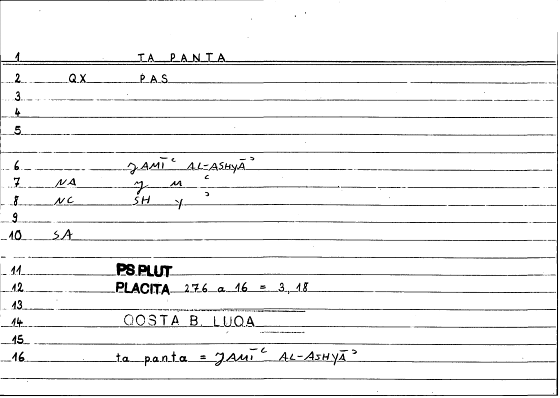 1 TA PANTA
2 QX PAS
3
4
5
6 JAMĪʿ AL-ASHYĀʾ
7 NA J M ʿ
8 NC SH Y ʾ
9
10 SA
11 PS.PLUT
12 PLACITA 276 a 16 = 3,18
13
14 QOSTA B. LUQA
15
16 ta panta = JAMĪʿ AL-ASHYĀʾ